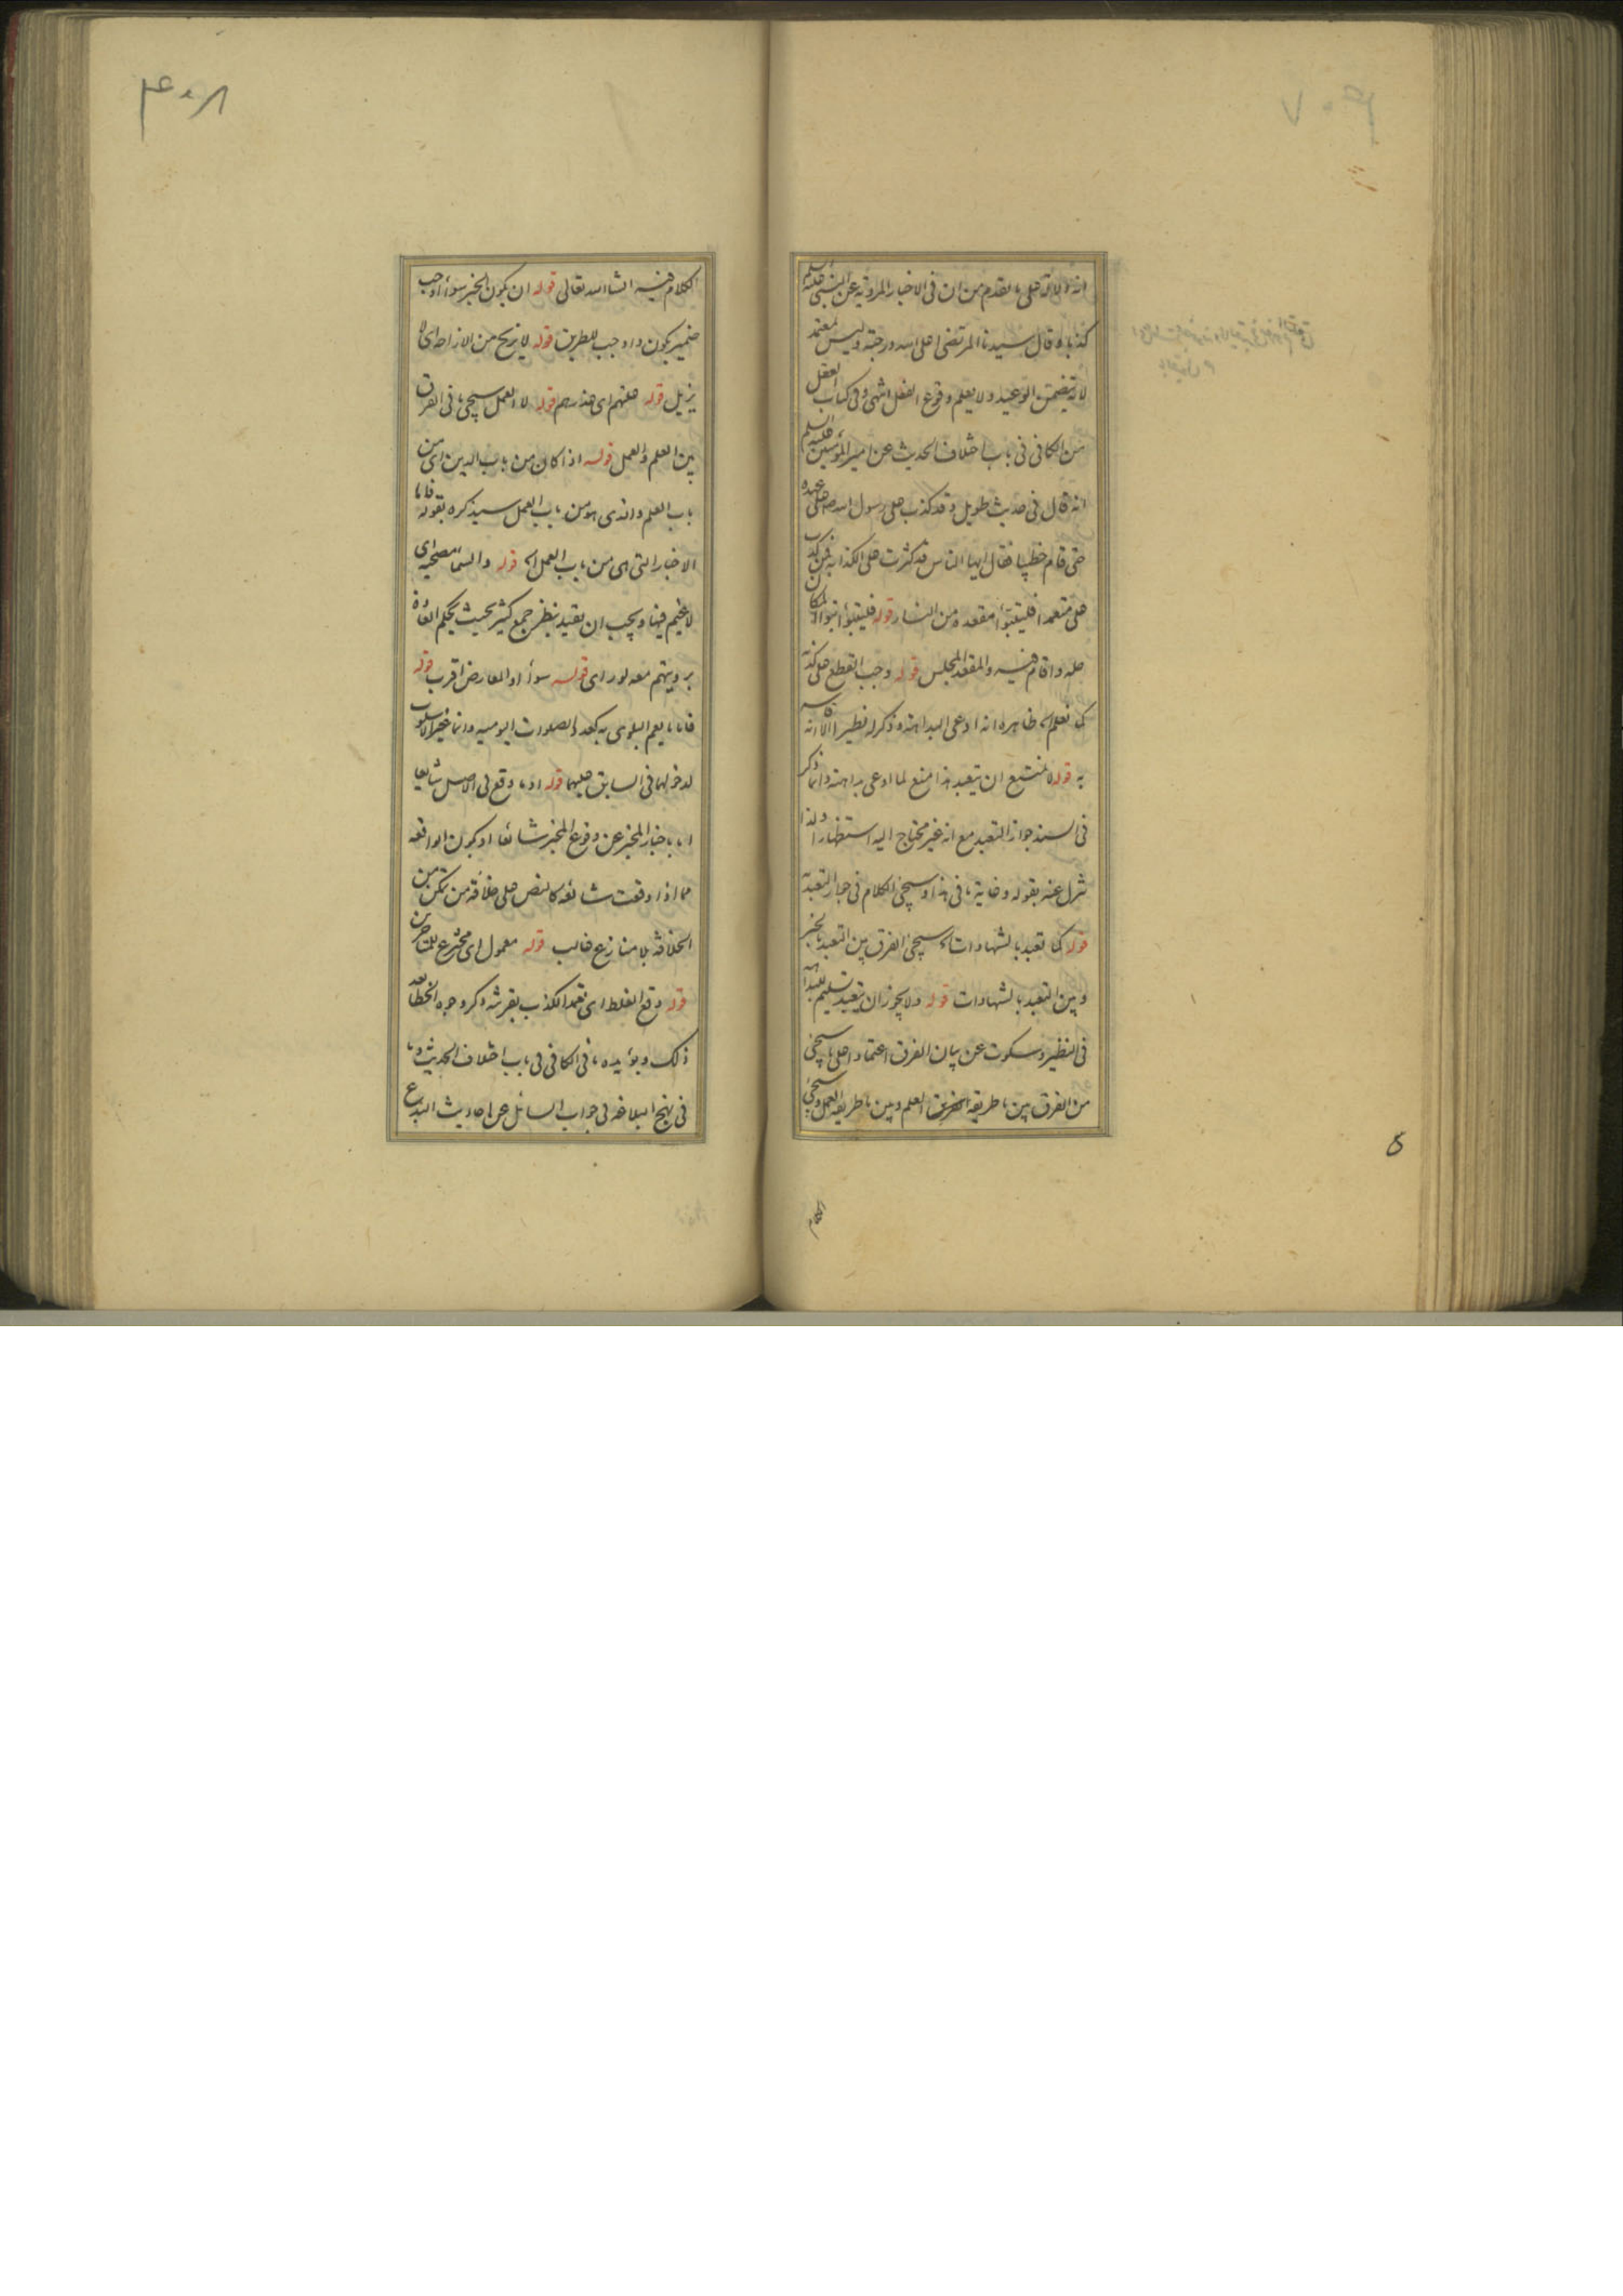 انه دلالة على ما تقدم من ان فى الاخبار المروية عن النبى عليه السلم
كذبا ه قال سيدنا المرتضى اعلى الله درجته وليس بمعتمد
لانه يتضمن الوعيد ولا يعلم وقوع الفعل انتهى وفى كتاب العقل
من الكافى فى باب اختلاف الحديث عن امير المؤمنين عليه السلم
انه قال فى حديث طويل وقد كذب على رسول الله ص على عهده
حتى قام خطيبا فقال ايها الناس قد كثرت على الكذابة فمن كذب
على متعمدا فليتبوأ مقعده من النار قوله فليتبوأ تبوأ المكان
حله واقام فيه والمقعد المجلس قوله وجب القطع على كذبه
كما نعلم اه ظاهره انه ادعى البداهة وذكر له نظيرا الا انه
به قوله لا يمتنع ان يتعبد هذا منع لما ادعى بداهته وانما ذكر
فى السند جواز التعبد مع انه غير محتاج اليه استظهارا ولذا
تنزل عنه بقوله وغاية ما فى هذا وسيجئ الكلام فى جواز التعبد
قوله كما تعبد بالشهادات اه سيجئ الفرق بين التعبد بالخبر
وبين التعبد بالشهادات قوله ولا يجوز ان يتعبد تسليم للبداهة
فى النظير وسكوت عن بيان الفرق اعتمادا على ما سيجئ
من الفرق بين ما طريقه العلم وبين ما طريقه العمل وسيجئ
الكلام
٤٠٧
الكلام فيه انشا الله تعالى قوله ان يكون الخبر سواء اوجب
ضمير يكون واوجب للطريق قوله لا يزيح من الازاحة اى لا
يزيل قوله علتهم اى عذرهم قوله لا العمل سيجئ ما فى الفرق
بين العلم والعمل قوله اذا كان من باب الدين اى من
باب العلم والذى هو من باب العمل سيذكره بقوله فاما
الاخبار التى هى من باب العمل اه قوله والسما مصحية اى
لا غيم فيها ويجب ان يقيد بنظر جمع كثير بحيث يحكم العادة
برويتهم معه لو راى قوله سواء او المعارض اقرب قوله
فاما ما يعم البلوى به كعدد الصلوات اليومية وانما غير الاسلوب
لدخولها فى السابق عليها قوله او ما وقع فى الاصل شايعا
اما باخبار المخبر عن وقوع المخبر شائعا او بكون الواقعة
مما اذا وقعت شائعة كالنص على خلافة من تمكن من
الخلافة بلا منازع غالب قوله معمول اى مخترع للمتاخرين
قوله وقع الغلط اى تعمد الكذب بقرينة ذكر وجوه الخطا بعد
ذلك ويؤيده ما فى الكافى فى باب اختلاف الحديث وما
فى نهج البلاغه فى جواب السائل عن احاديث البدع
٤٠٨